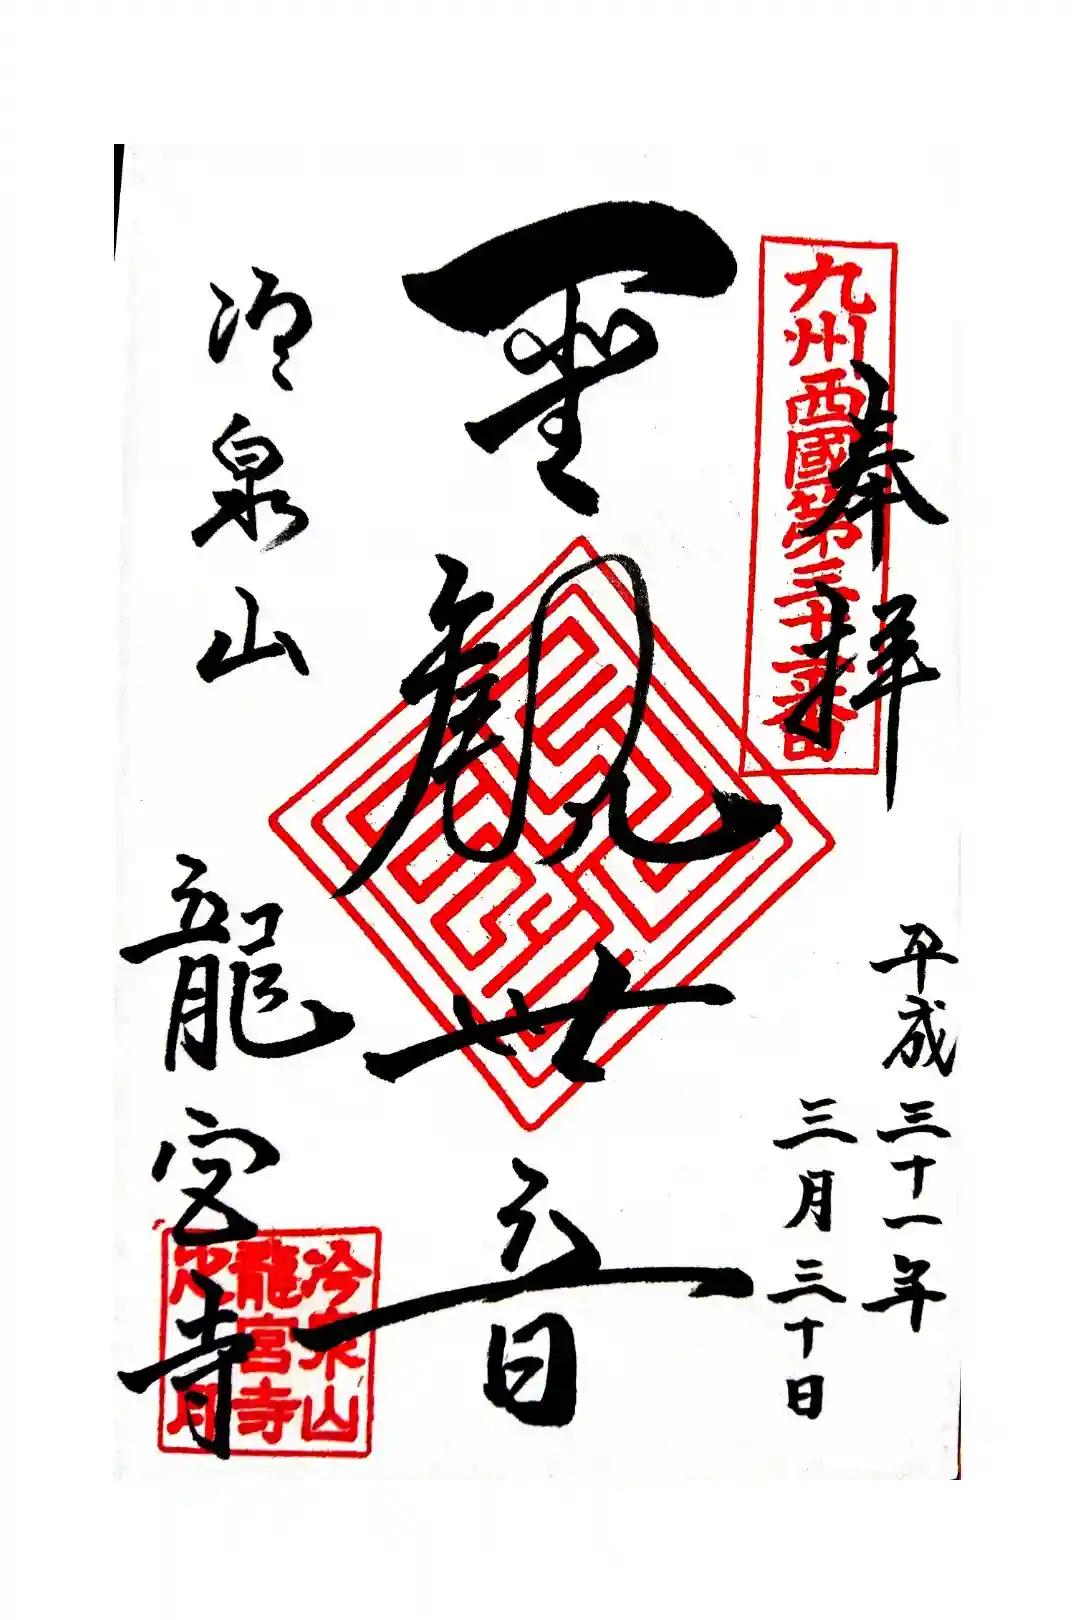 奉拝
九州西國第三十二番
平成三十一年
三月三十日
聖觀世音
冷泉山
龍宮寺
冷泉山
龍宮寺